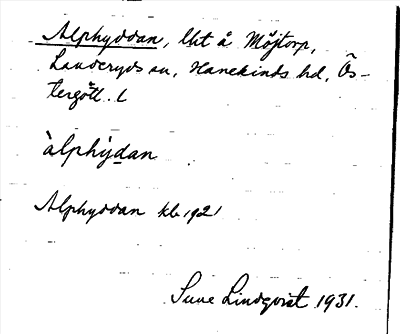 Alphyddan, lht å Möjtorp,
Landeryds sn, Hanekinds hd, Ös-
tergötl. L
àlphỳdan
Alphyddan kb 1921
Sune Lindqvist 1931.